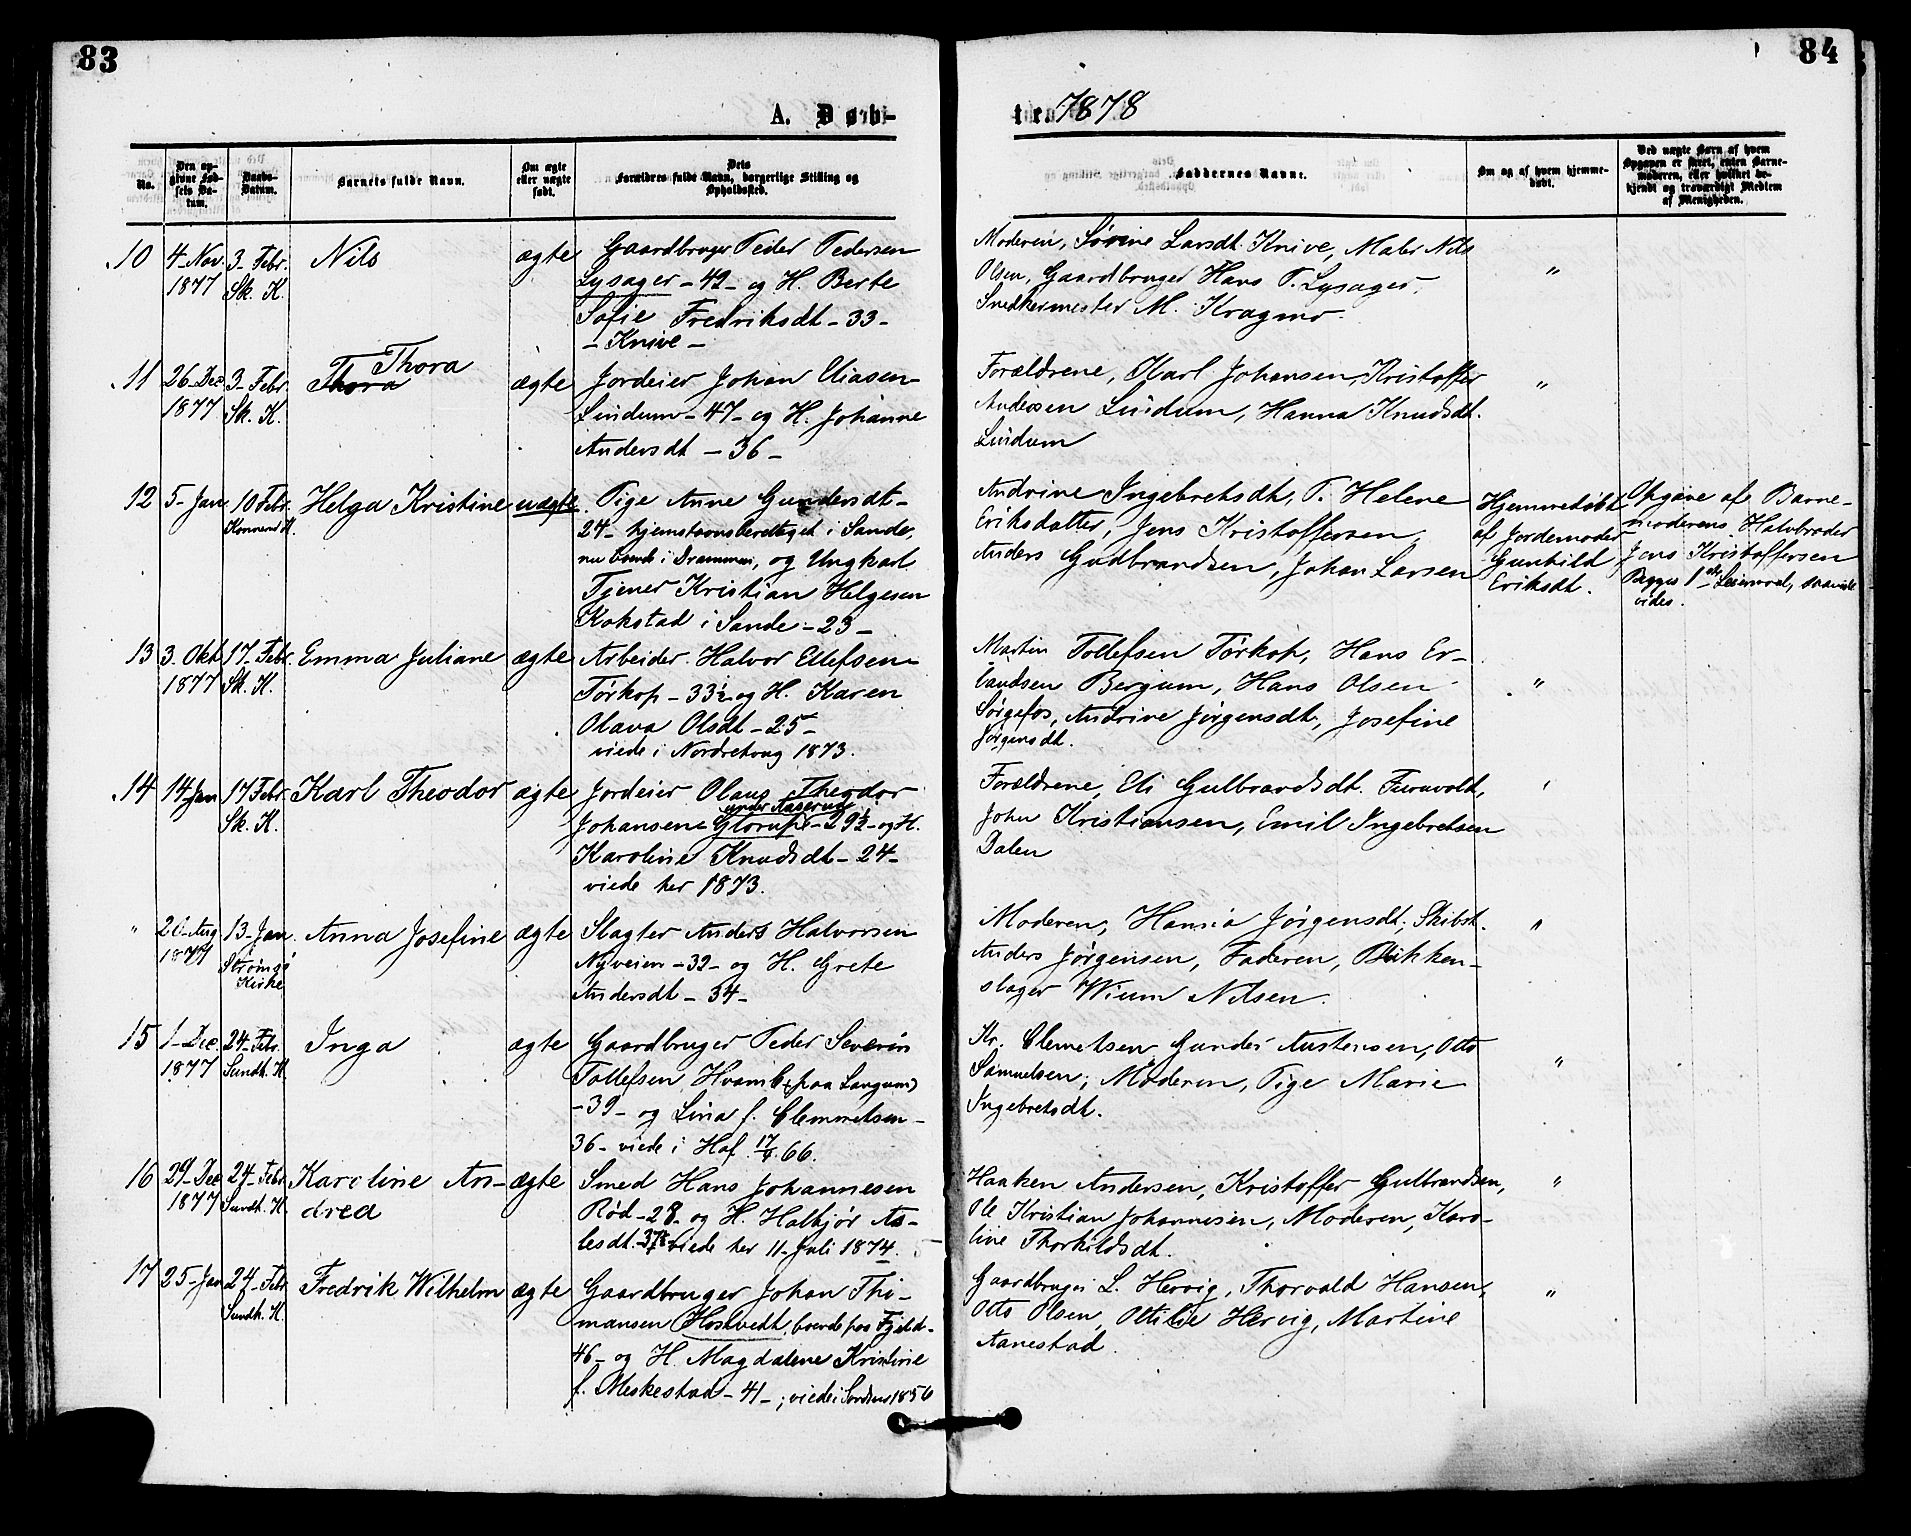 83
84
A. Døb-
te. 1878
No.
Den op-
givne Fød-
sels Da-
tum.
Daabs-
Datum.
Barnets fulde Navn.
Om ægte
eller uægte
født.
Dets
Forældres fulde Navn, borgerlige Stilling og
Opholdssted.
Faddernes Navne.
Om og af hvem hjemme-
døbt.
Ved uægte Børn af hvem
Opgaven er skeet, enten Barne-
moderen, eller hvilket be-
kjendt og troværdigt Medlem
af Menigheden.
10 4-Nov. 1877 3-Febr. Sk. K. Nils ægte
Gaardbruger Peder Pedersen
Lysager -42- og H. Berte
Sofie Fredriksdt -33-
- Knive -
Moderen, Sørine Larsdt. Knive, Maler Nils
Olsen, Gaardbruger Hans P. Lysager,
Snedkermester M. Kragmo.
"
11 26-Dec 1877 3-Febr. Sk. K. Thora Thora ægte
Jordeier Johan Eliasen
Lindum -47- og H. Johanne
Andersdt -36-
Forældrene, Karl Johansen, Kristoffer
Andersen Lindum, Hanna Knudsdt.
Lindum
"
12 5-Jan 10 Febr. Konnerud K. Helga Kristine uægte
Pige Anne Gundersdt-
24- hjemstavnsberettiget i Sande,
nu boende i Drammen, og Ungkarl
Tjener Kristian Helgesen
Kokstad i Sande -23-
Andrine Ingebretsdt, P. Helene
Eriksdatter, Jens Kristoffersen,
Anders Gudbrandsen, Johan Larsen
Hjemmedøbt
af Jordemoder
Gunhild
Eriksdt.
Opgave af Barne-
moderens Halvbroder
Jens Kristoffersen
Begges 1ste Leiermaal, saavidt
vides.
13 3. Okt 1877 17-Febr. Sk. K. Emma Juliane ægte
Arbeider Halvor Ellefsen
Tørkop -33½- og H. Karen
Olava Olsdt -25-
viede i Nordrehoug 1873.
Martin Tollefsen Tørkop, Hans Er-
landsen Bergum, Hans Olsen
Sørgefos, Andrine Jørgensdt, Josefine
Jørgensdt.
"
14 14-Jan 17 Febr. Sk. K. Karl Theodor ægte
Jordeier Olaus Theodor
under Aaserud
Johansene Glorupe -29½- og H.
Karoline Knudsdt -24-
viede her 1873.
Forældrene, Eli Gulbrandsdt. Furuvold,
John Kristiansen, Emil Ingebretsen
Dalen
"
" 20-Aug 1877 13-Jan. Strømsø Kirke Anna Josefine ægte
Slagter Anders Halvorsen
Nyveien -32- og H. Grete
Andersdt -34-
Moderen, Hansia Jørgensdt, Skibst.
Anders Jørgensen, Faderen, Blikken-
slager Wium Nilsen.
"
15 1-Dec. 1877 24-Febr. Sundh. K. Inga ægte
Gaardbruger Peder Severin
Tollefsen Hvamb (paa Langum)
-39- og Lina f. Clemmetsen-
36- viede i Haf. 17/8.66.
Kr. Clemetsen, Gunder Austensen, Otto
Samuelsen, Moderen, Pige Marie
Ingebretsdt.
"
16 29-Dec 1877 24-Febr. Sundh. K. Karoline An-
drea ægte
Smed Hans Johannesen
Rød -28- og H. Halkjør As-
lesdt. -37⅞- viede her 11-Juli 1874.
Haaken Andersen, Kristoffer Gulbrandsen,
Ole Kristian Johannesen, Moderen, Karo-
line Thorkildsdt.
"
17 25-Jan 24-Febr Sundh. K. Fredrik Wilhelm ægte
Gaardbruger Johan Thi-
mansen Hostvedt, boende paa Fjeld-
46- og H. Magdalene Kristine
f. Meskestad -41-; viede i Sandsvær 1856
Gaardbruger L. Hervig, Thorvald Hansen,
Otto Olsen, Ottilie Hervig, Martine
Aanestad.
"